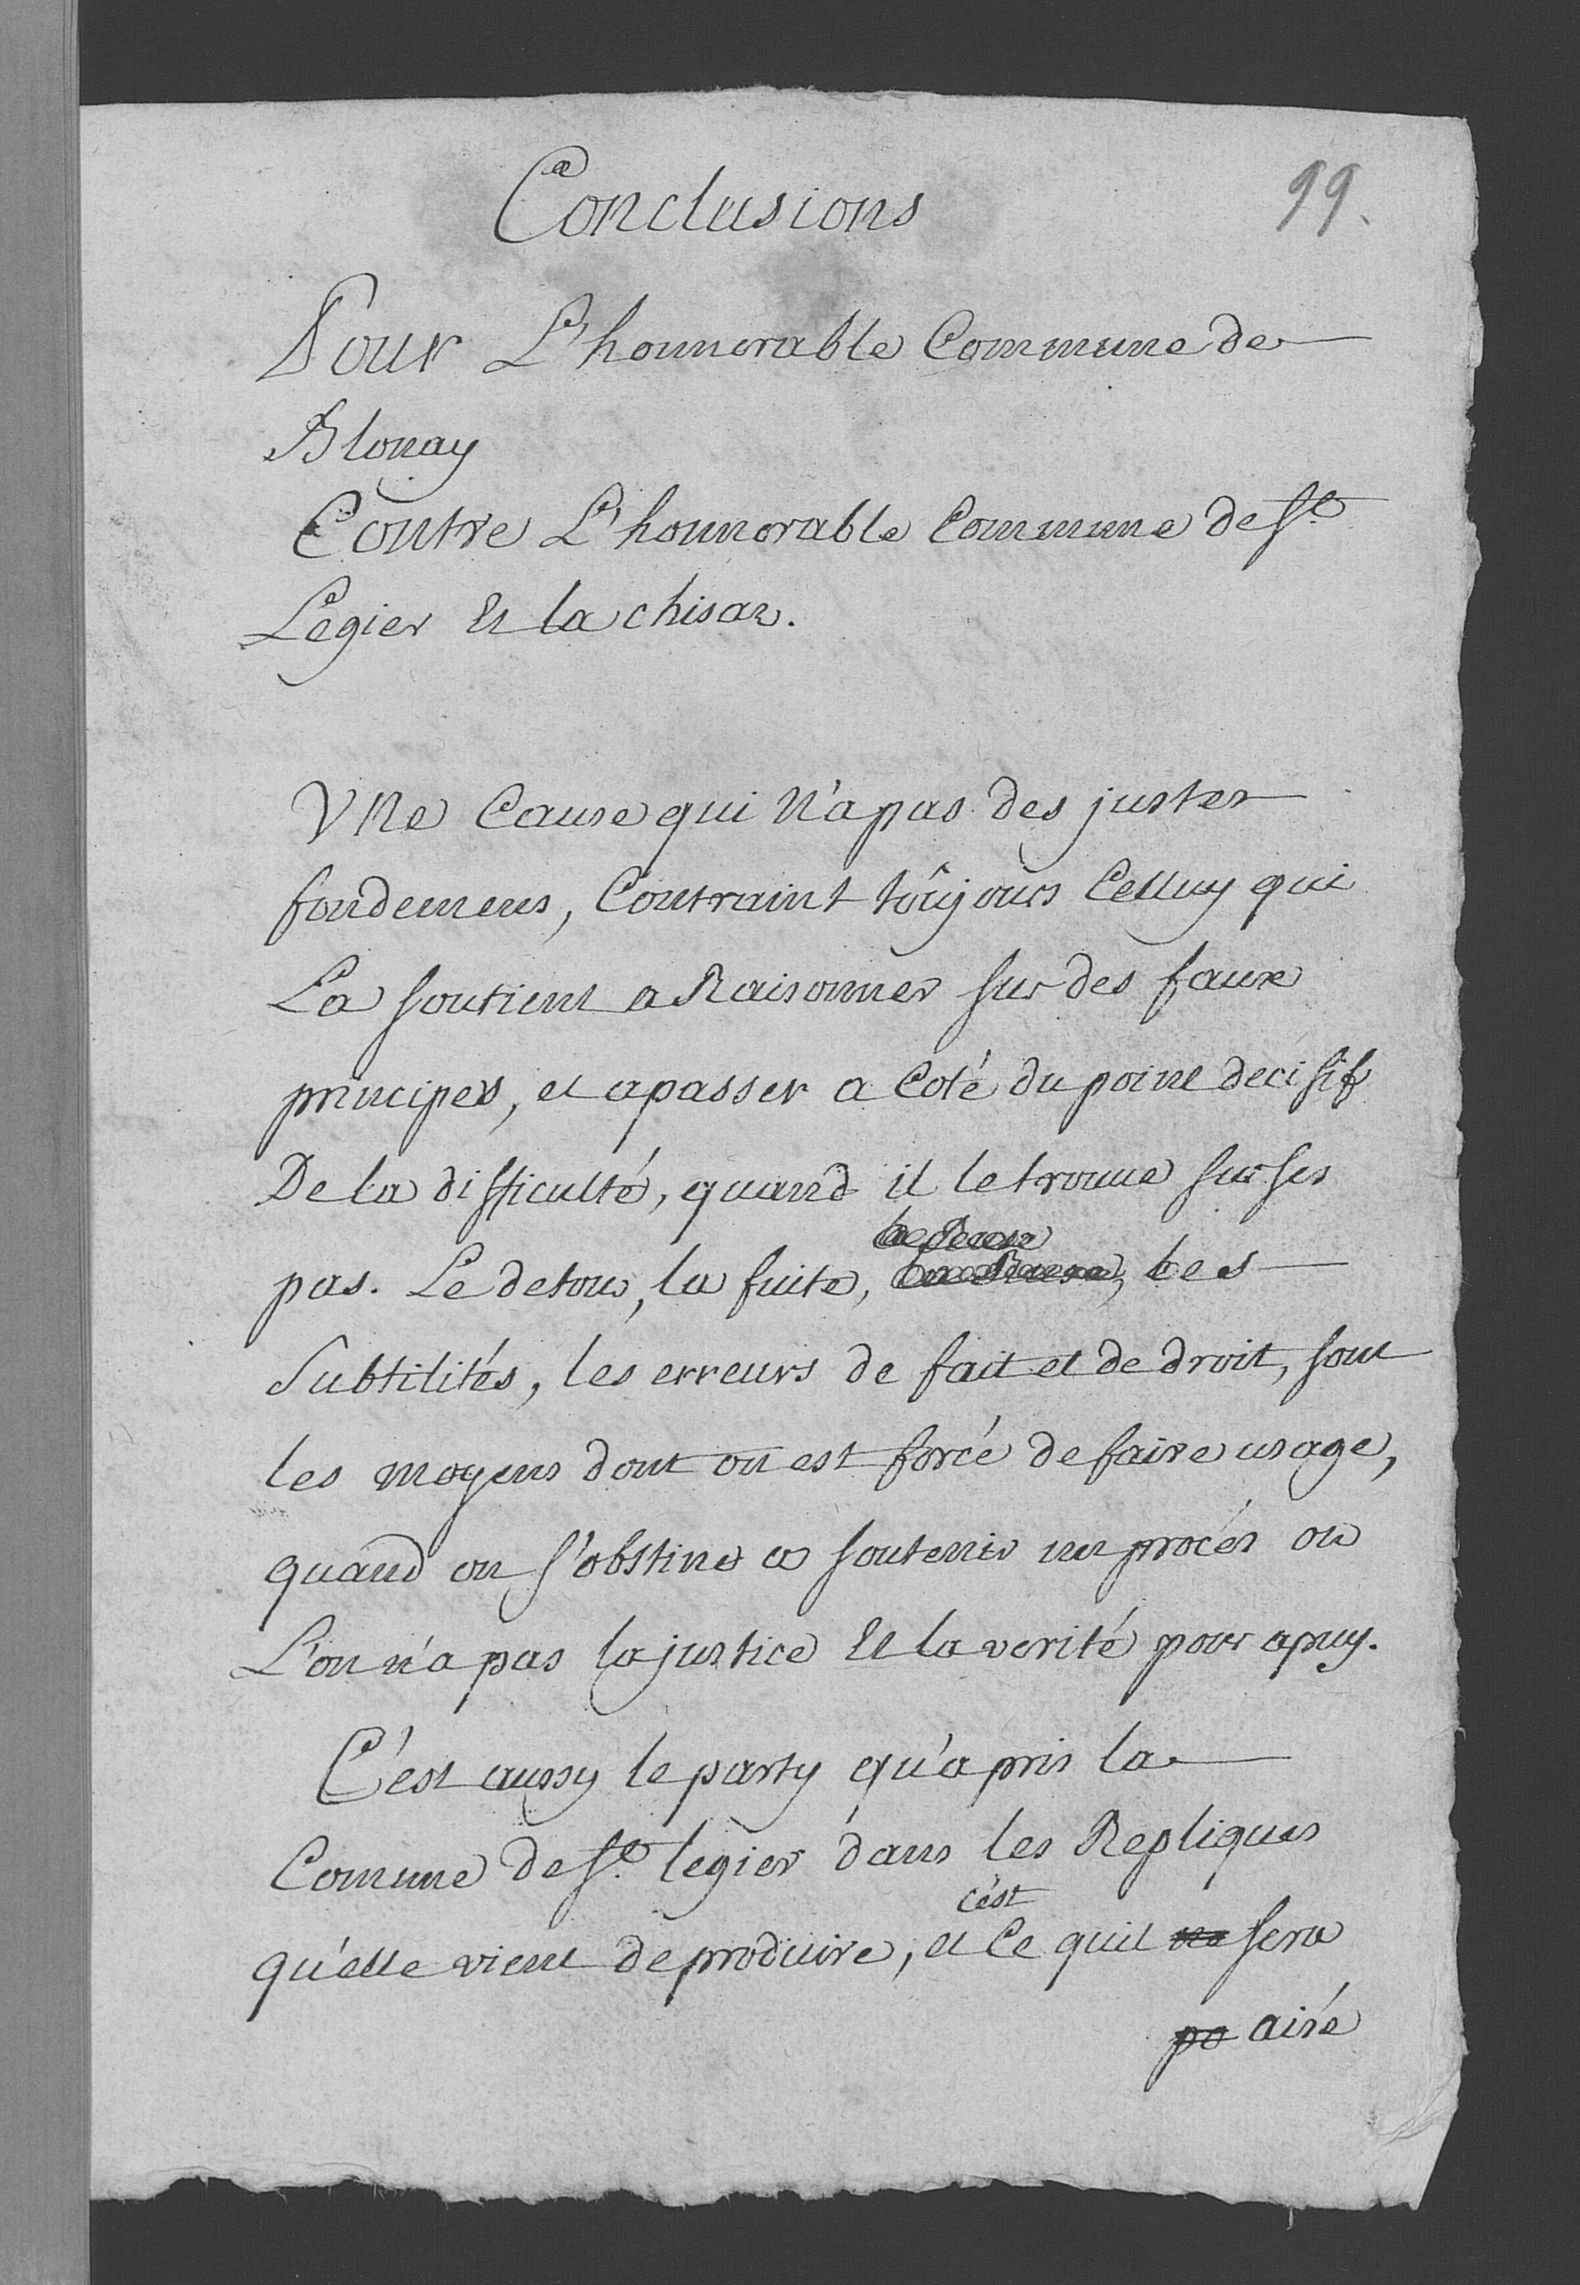 Conclusions
99.
Pour L'honnorable Commune de
Blonay
Contre L'honnorable Commune de St
Legier Et la chisaz.
Une Cause qui N'a pas des justes
fondemens, Contraint toûjours Celluy qui
La soutient a Raisonner sur des faux
principes, et a passer a Coté du point decisif
De la difficulté, quand il le trouve sur ses
pas. Le detour, la fuite, les
Subtilités, les erreurs de fait et de droit, sont
les moyens dont on est forcé de faire usage,
quand on s'obstine a soutenir un procés ou
L'on n'a pas la justice Et la verité pour apuy.
C'est aussy le party qu'a pris la
Comune de St legier dans les Repliques
c'est
qu'elle vient de produire, et Ce quil ne sera
pa aisé